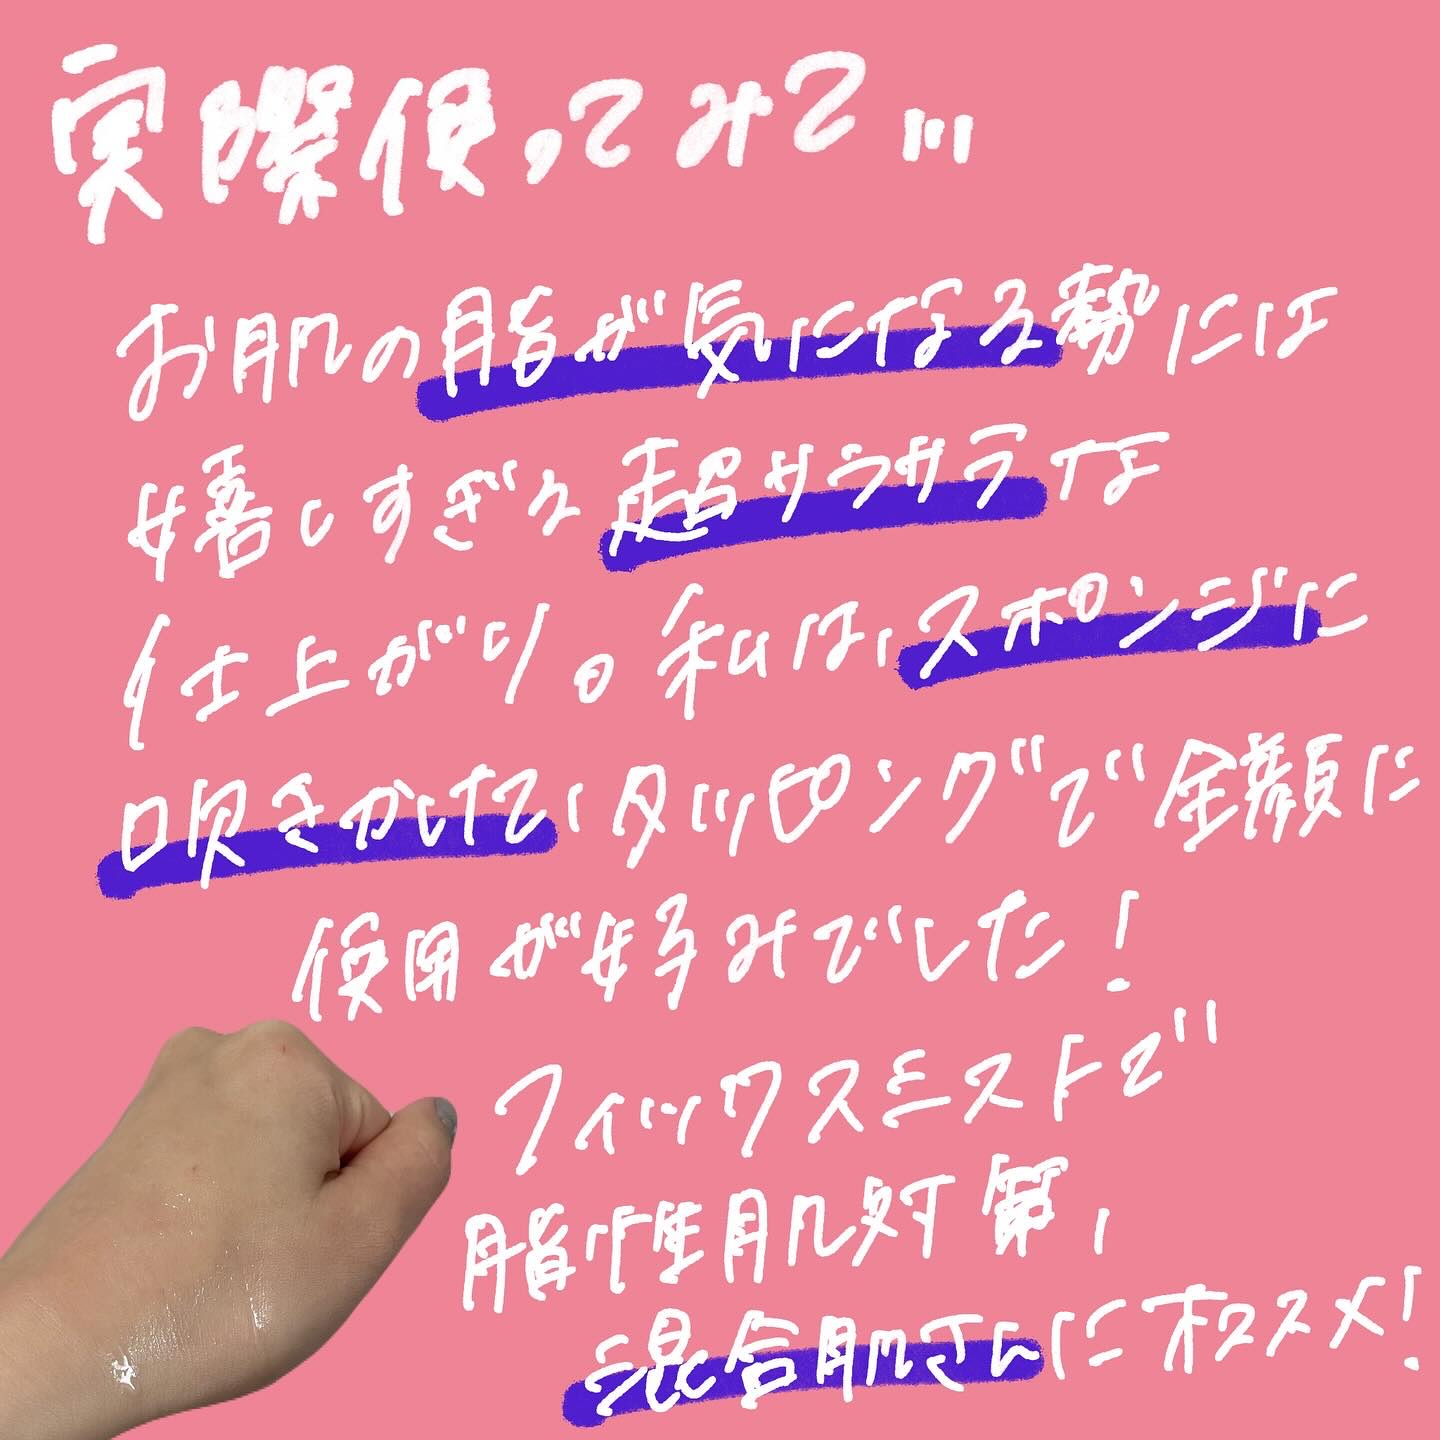 実際使ってみて...
お肌の脂が気になる勢には
嬉しすぎる超サラサラな
仕上がり。私は、スポンジに
吹きかけて、タッピングで全顔に
使用が好みでした！
フィックスミストで
脂性肌対策、
混合肌さんにオススメ！